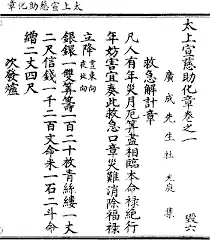 太上宣慈助化章
太上宣慈助化章卷之一 毀六
廣成先生杜光庭集
救急解計章
凡人有年災月厄筭盡相臨本命祿絶行
年妨害宜奏此救急口章災難消除福祿
立降 晝東向 夜北向
銀鐶一雙筭籌一百二十枚青絲縷一丈
二尺信錢一千二百文命米一石二斗命
繒二丈四尺
次發爐